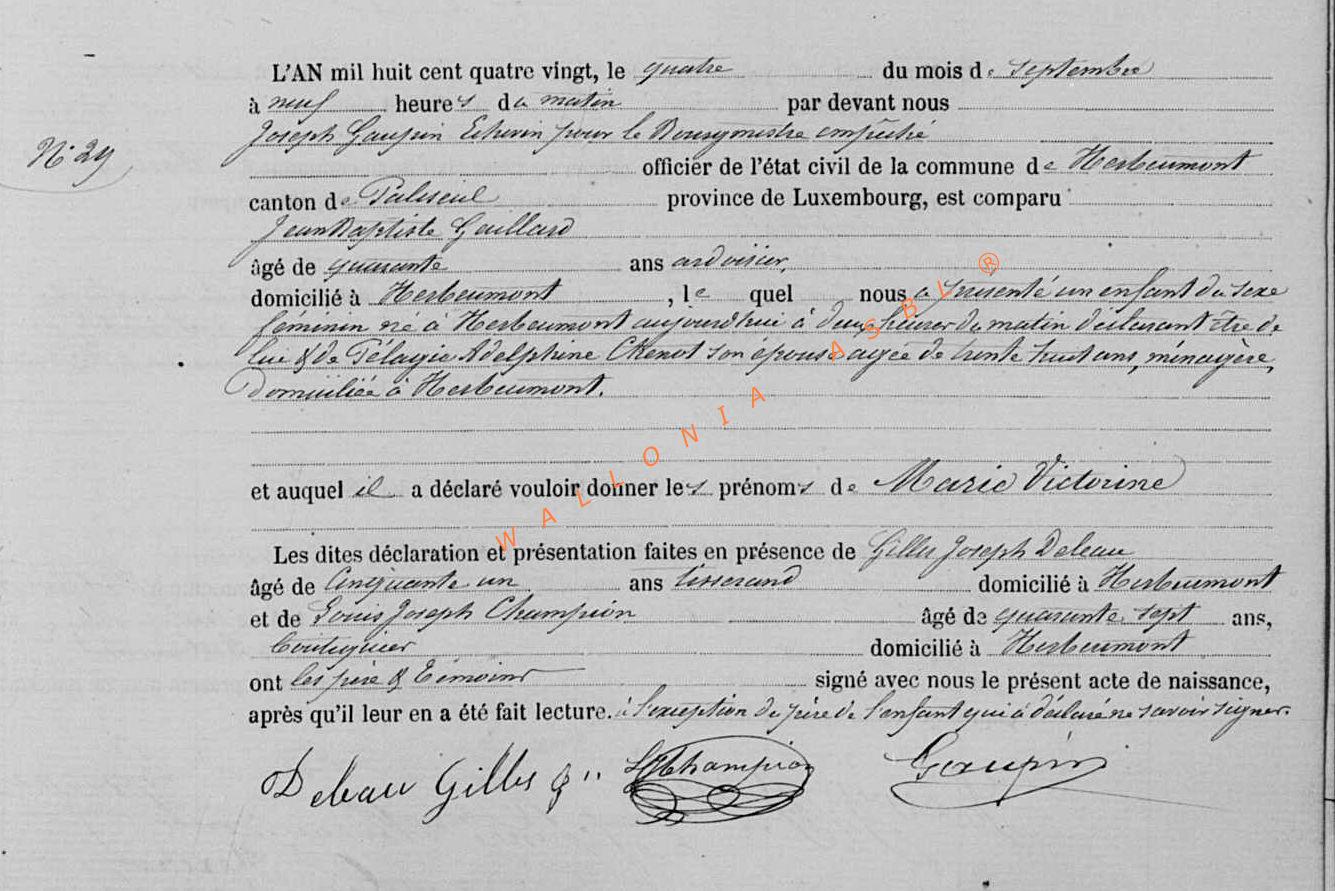 L'AN mil huit cent quatre vingt, le quatre du mois de septembre
à neuf heures du matin par devant nous
Joseph Gaupin Echevin pour le Bourgmestre empêché
N° 29
officier de l'état civil de la commune de Herbeumont
canton de Paliseul province de Luxembourg, est comparu
Jean Baptiste Gaillard
âgé de quarante ans ardoisier,
domicilié à Herbeumont, le quel nous a présenté un enfant du sexe
féminin né à Herbeumont aujourd'hui à deux heures du matin déclarant être de
lui & de Pélagie Adelphine Chenot son épouse agée de trente huit ans, ménagère,
domiciliée à Herbeumont.
et auquel il a déclaré vouloir donner les prénoms de Marie Victorine
Les dites déclaration et présentation faites en présence de Gilles Joseph Deleau
âgé de Cinquante un ans tisserand domicilié à Herbeumont
et de Louis Joseph Champion âgé de quarante sept ans,
domicilié à Herbeumont
ont les père & témoins signé avec nous le présent acte de naissance,
après qu'il leur en a été fait lecture. à l'exception du père de l'enfant qui a déclaré ne savoir signer.
Deleau Gilles Champion Gaupin
WALLONIA ASBL ®